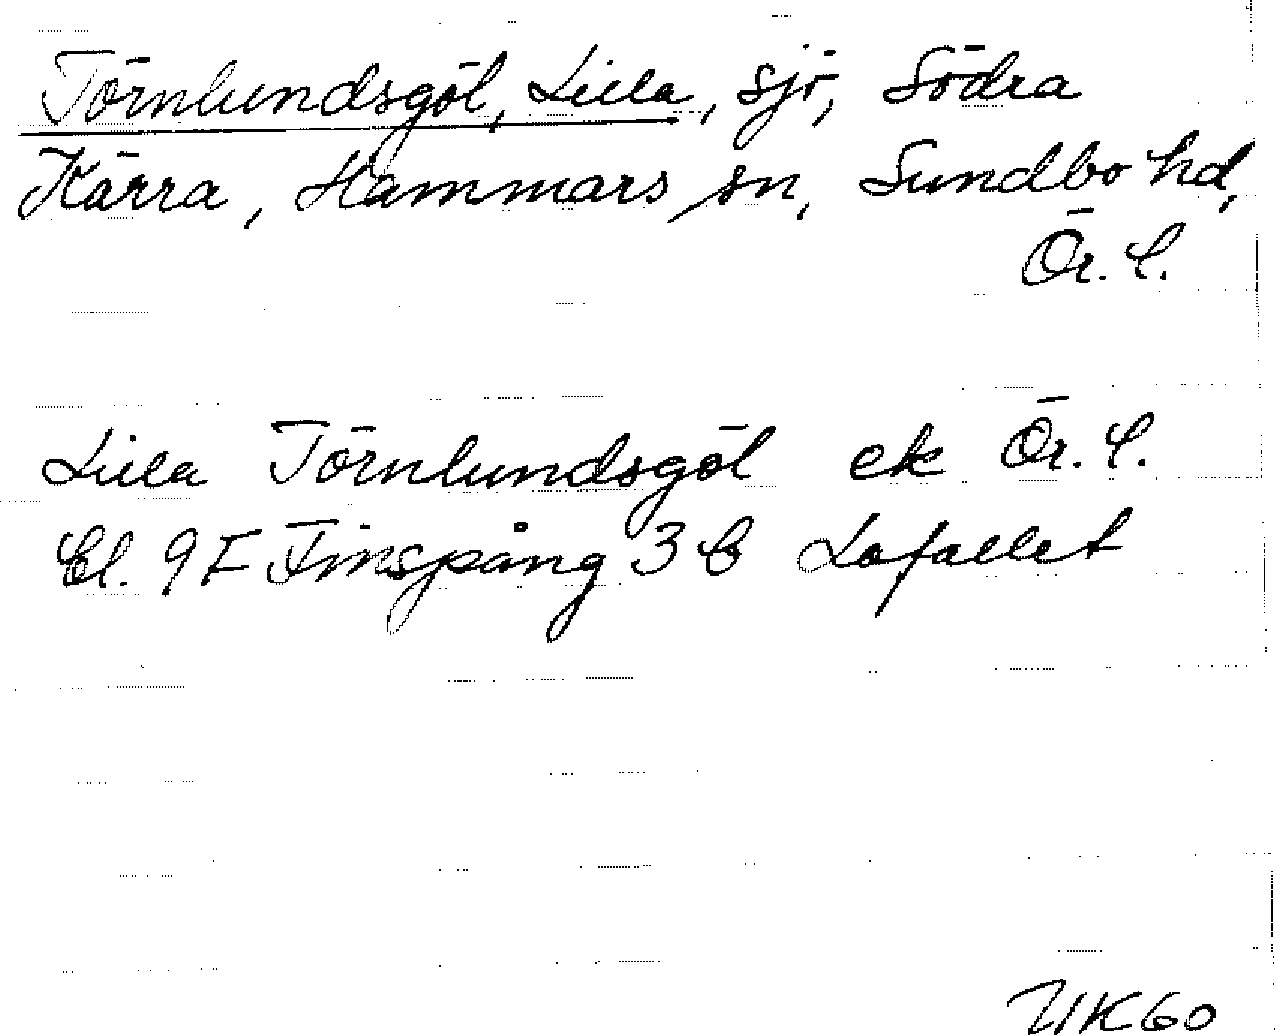 Törnlundsgöl, Lilla, sjö, Södra
Kärra, Hammars sn, Sundbo hd,
Ör. l.
Lilla Törnlundsgöl ek Ör. l.
Bl. 9F Finspång 3 b Låfallet
UK60